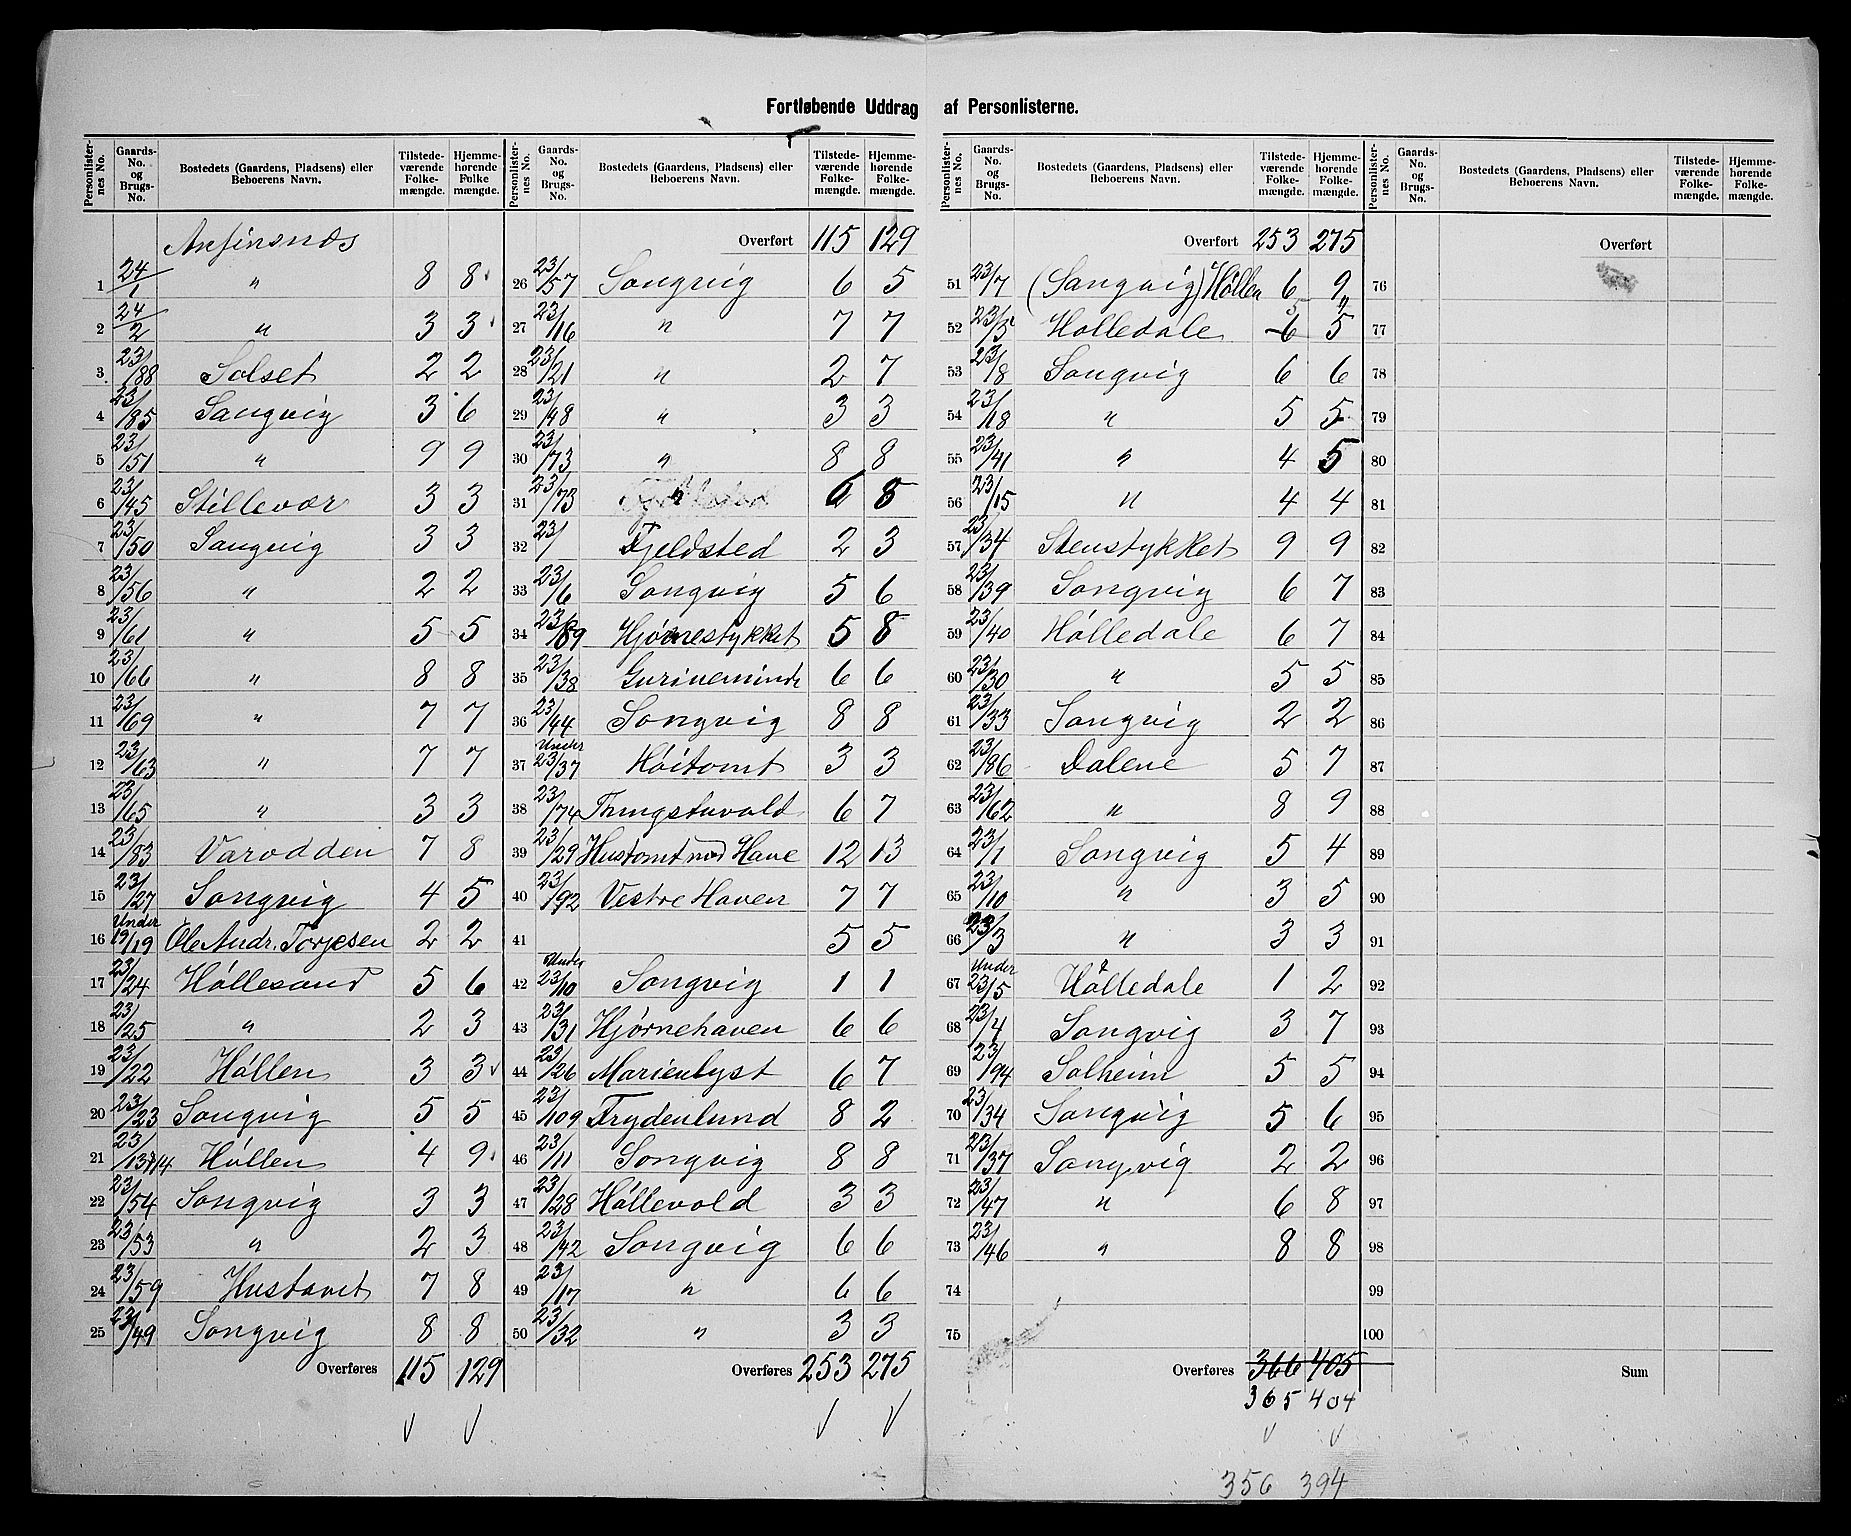 Fortløbende Uddrag af Personlisterne.
Personlister-nes No. | Gaards-No. og Brugs-No. | Bostedets (Gaardens, Pladsens) eller Beboerens Navn. | Tilstede-værende Folke-mængde. | Hjemme-hørende Folke mængde.
Arfinsnæs
1 24/1 " 8 8
2 24/2 " 3 3
3 23/88 Solset 2 2
4 23/85 Sangvig 3 6
5 23/51 " 9 9
6 23/45 Stillevær 3 3
7 23/50 Sangvig 3 3
8 23/56 " 2 2
9 23/61 " 5 5
10 23/66 " 8 8
11 23/69 " 7 7
12 23/63 " 7 7
13 23/65 " 3 3
14 23/83 Varodden 7 8
15 23/27 Songvig 4 5
16 Under 19/19 Ole Andr. Torjesen 2 2
17 23/24 Høllesund 5 6
18 23/25 " 2 3
19 23/22 Høllen 3 3
20 23/23 Songvig 5 5
21 23/13 14 Høllen 4 9
22 23/54 Songvig 3 3
23 23/53 " 2 3
24 23/59 Hustavet 7 8
25 23/49 Songvig 8 8
Overføres 115 129
Personlister-nes No. | Gaards-No. og Brugs-No. | Bostedets (Gaardens, Pladsens) eller Beboerens Navn. | Tilstede-værende Folke-mængde. | Hjemme-hørende Folke-mængde.
Overført 115 129
26 23/57 Songvig 6 5
27 23/16 " 7 7
28 23/21 " 2 7
29 23/48 " 3 3
30 23/73 " 8 8
31 23/73 " 6 8
32 23/ Fjeldsted 2 3
33 23/6 Songvig 5 6
34 23/89 Hjørnestykket 5 8
35 23/38 Gurineminde 6 6
36 23/44 Songvig 8 8
37 Under 23/37 Høitomt 3 3
38 23/74 Thingstuvold 6 7
39 23/29 Hustomt med Have 12 13
40 23/92 Vestre Haven 7 7
41 5 5
42 Under 23/10 Songvig 1 1
43 23/31 Hjørnehaven 6 6
44 23/26 Marienlyst 6 7
45 23/109 Frydenlund 8 2
46 23/11 Songvig 8 8
47 23/28 Høllevold 3 3
48 23/42 Songvig 6 6
49 23/17 " 6 6
50 23/32 " 3 3
Overføres 253 275
Personlister-nes No. | Gaards-No. og Brugs-No. | Bostedets (Gaardens, Pladsens) eller Beboerens Navn. | Tilstede-værende Folke-mængde. | Hjemme-hørende Folke-mængde.
Overført 253 275
51 23/7 (Sangvig) Høllen 6 9
52 23/5 Hølledale 6 5 5
53 23/8 Songvig 6 6
54 23/18 " 5 5
55 23/41 " 4 5
56 23/15 " 4 4
57 23/34 Stenstykket 9 9
58 23/39 Songvig 6 7
59 23/40 Hølledale 6 7
60 23/30 " 5 5
61 23/33 Songvig 2 2
62 23/86 Dalene 5 7
63 23/62 " 8 9
64 23/1 Songvig 5 4
65 23/10 " 3 5
66 23/3 " 3 3
67 Under 23/5 Hølledale 1 2
68 23/4 Songvig 3 7
69 23/94 Solheim 5 5
70 23/34 Songvig 5 6
71 23/37 Songvig 2 2
72 23/47 " 6 8
73 23/46 " 8 8
74
75
Overføres 366 405
365 404
356 394
Personlister-nes No. | Gaards-No. og Brugs-No. | Bostedets (Gaardens, Pladsens) eller Beboerens Navn. | Tilstede-værende Folke-mængde. | Hjemme-hørende Folke-mængde.
Overført
76
77
78
79
80
81
82
83
84
85
86
87
88
89
90
91
92
93
94
95
96
97
98
99
100
Sum